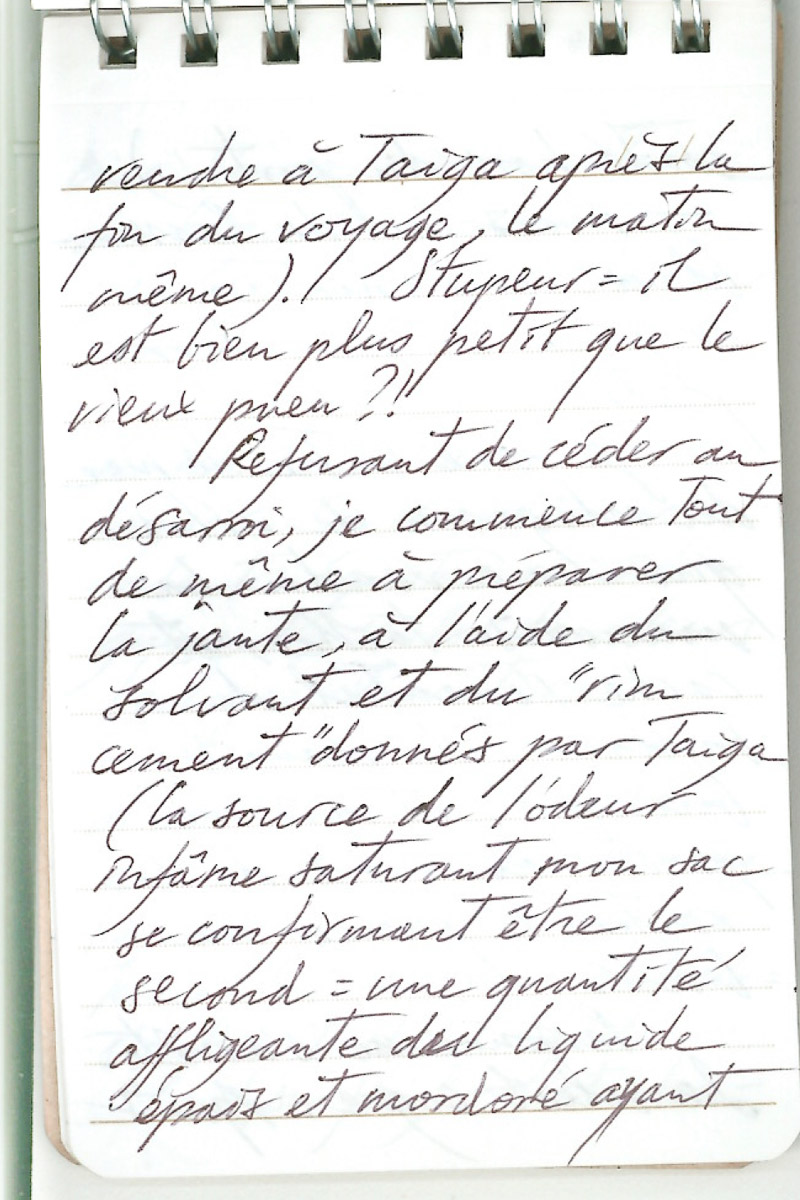 vendre à Taiga après la
fin du voyage, le matin
même). Stupeur = il
est bien plus petit que le
vieux pneu ?!
Refusant de céder au
désarroi, je commence tout
de même à préparer
la jante, à l'aide du
solvant et du "rim
cement" donnés par Taiga
(la source de l'odeur
infâme saturant mon sac
se confirmant être le
second = une quantité
affligeante du liquide
épais et mordoré ayant